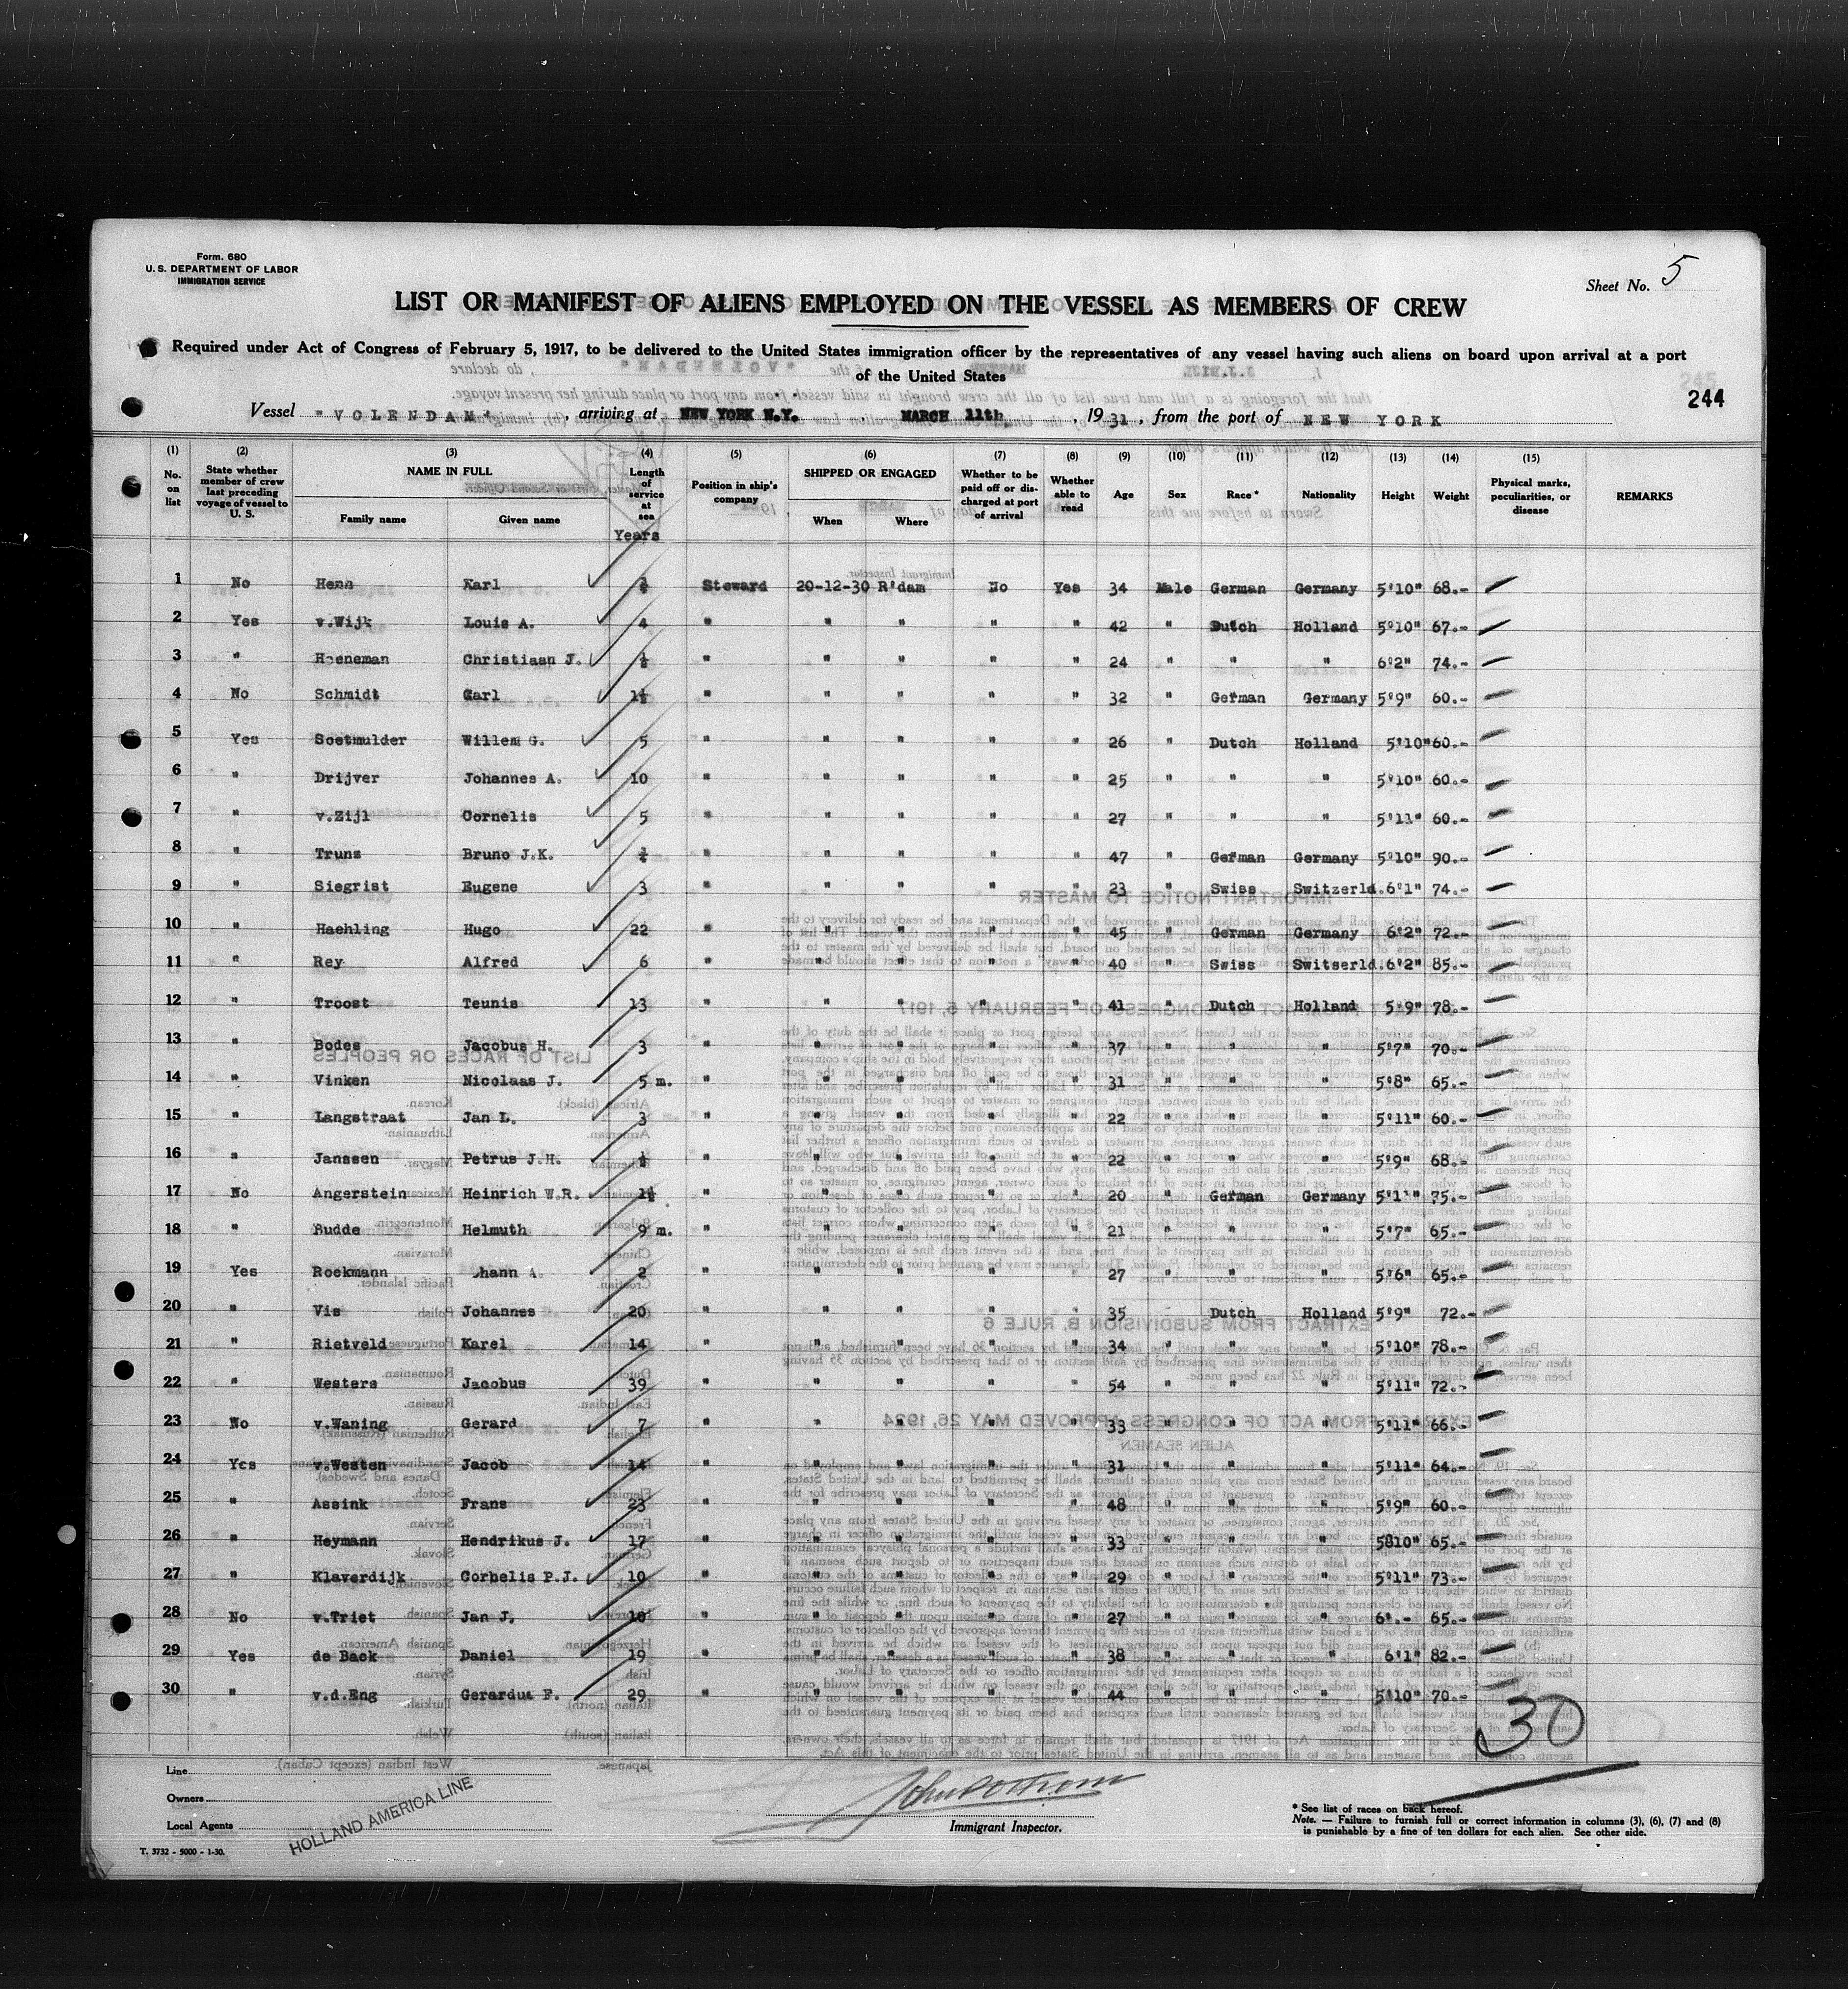 Form. 680
U. S. DEPARTMENT OF LABOR
IMMIGRATION SERVICE
Sheet No. 5
LIST OR MANIFEST OF ALIENS EMPLOYED ON THE VESSEL AS MEMBERS OF CREW
Required under Act of Congress of February 5, 1917, to be delivered to the United States immigration officer by the representatives of any vessel having such aliens on board upon arrival at a port
of the United States
244
Vessel "VOLENDAM", arriving at NEW YORK N.Y. MARCH 11th, 1931, from the port of NEW YORK
(1) (2) (3) (4) (5) (6) (7) (8) (9) (10) (11) (12) (13) (14) (15)
No. on list State whether member of crew last preceding voyage of vessel to U. S. NAME IN FULL Family name Given name Length of service at sea Years Position in ship's company SHIPPED OR ENGAGED When Where Whether to be paid off or discharged at port of arrival Whether able to read Age Sex Race* Nationality Height Weight Physical marks, peculiarities, or disease REMARKS
1 No Henn Karl Steward 20-12-30 R'dam No Yes 34 Male German Germany 5'10" 68.-
2 Yes v.Wijk Louis A. 4 " " " " " 42 " Dutch Holland 5'10" 67.-
3 " Heeneman Christiaan J. " " " " " 24 " " " 6'2" 74.-
4 No Schmidt Carl 1½ " " " " " 32 " German Germany 5'9" 60.-
5 Yes Soetmulder Willem G. 5 " " " " " 26 " Dutch Holland 5'10" 60.-
6 " Drijver Johannes A. 10 " " " " " 25 " " " 5'10" 60.-
7 " v.Zijl Cornelis 5 " " " " " 27 " " " 5'11" 60.-
8 " Trunz Bruno J.K. " " " " " 47 " German Germany 5'10" 90.-
9 " Siegrist Eugene 3 " " " " " 23 " Swiss Switzerld. 6'1" 74.-
10 " Haehling Hugo 22 " " " " " 45 " German Germany 6'2" 72.-
11 " Rey Alfred 6 " " " " " 40 " Swiss Switserld. 6'2" 85.-
12 " Troost Teunis 13 " " " " " 41 " Dutch Holland 5'9" 78.-
13 " Bodes Jacobus H. 3 " " " " " 37 " " " 5'7" 70.-
14 " Vinken Nicolaas J. 5 m. " " " " " 31 " " " 5'8" 65.-
15 " Langstraat Jan L. 3 " " " " " 22 " " " 5'11" 60.-
16 " Janssen Petrus J.H. ½ " " " " " 22 " " " 5'9" 68.-
17 No Angerstein Heinrich W.R. 1½ " " " " " 20 " German Germany 5'11" 75.-
18 " Budde Helmuth 9 m. " " " " " 21 " " " 5'7" 65.-
19 Yes Rockmann hann 2 " " " " " 27 " " " 5'6" 65.-
20 " Vis Johannes 20 " " " " " 35 " Dutch Holland 5'9" 72.-
21 " Rietveld Karel 14 " " " " " 34 " " " 5'10" 78.-
22 " Westers Jacobus 39 " " " " " 54 " " " 5'11" 72.-
23 No v.Waning Gerard 7 " " " " " 33 " " " 5'11" 66.-
24 Yes v.Westen Jacob 14 " " " " " 31 " " " 5'11" 64.-
25 " Assink Frans 23 " " " " " 48 " " " 5'9" 60.-
26 " Heymann Hendrikus J. 17 " " " " " 33 " " " 5810" 65.-
27 " Klaverdijk Corhelis P.J. 10 " " " " " 29 " " " 5'11" 73.-
28 No v.Triet Jan J. 10 " " " " " 27 " " " 6'.- 65.-
29 Yes de Back Daniel 19 " " " " " 38 " " " 6'1" 82.-
30 " v.d.Eng Gerardus F. 29 " " " " " 44 " " " 5'10" 70.-
30
Line
Owners
Local Agents
HOLLAND AMERICA LINE
Immigrant Inspector.
* See list of races on back hereof.
Note. — Failure to furnish full or correct information in columns (3), (6), (7) and (8)
is punishable by a fine of ten dollars for each alien. See other side.
T. 3732 - 5000 - 1-30.